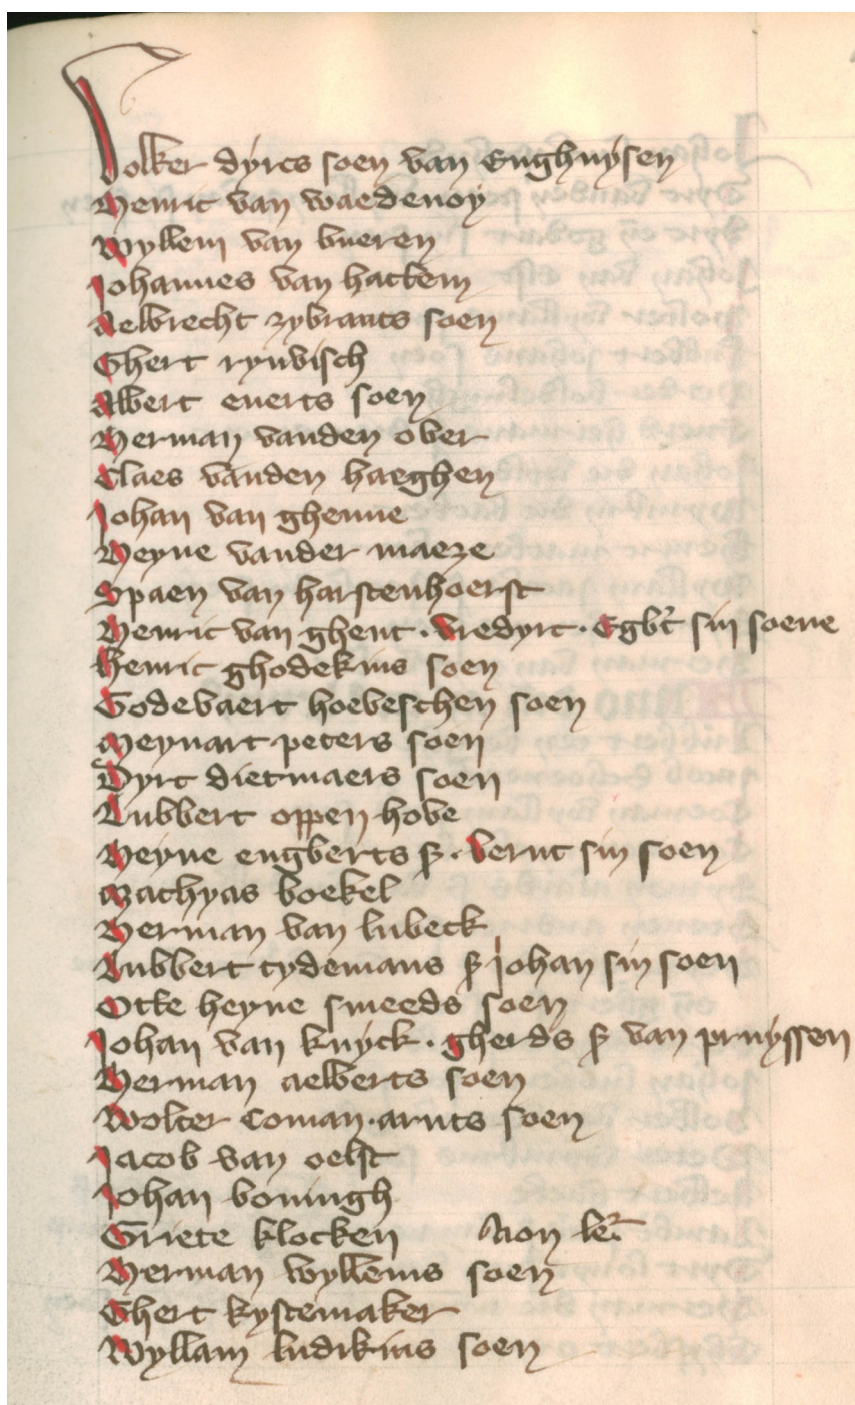 Volker dyrcs soen van Enghuysen
Henric van waedenoy
Wyllem van bueren
Johannes van hattem
Aelbrecht zybrants soen
Ghert rynvisch
Albert euerts soen
Herman vanden over
Claes vanden haeghen
Johan van ghenne
Heyne vander maeze
Spaen van harstenhoerst
Henric van ghent · vredyrc · Egbt sin soene
Henric ghodekins soen
Godevaert hoeveschen soen
Meynart peters soen
Dyrc dietmaers soen
Lubbert oppen hove
Heyne engberts ß · bernt sin soen
Mathyas boekel
Herman van lubeck
Lubbert tydemans ß Johan sin soen
Otte heyne smeeds soen
Johan van kuyck · gherds ß van pruyssen
Herman aelberts soen
Wolter coman · arnts soen
Jacob van oelst
Johan boningh
Griete klocken Non
Herman wyllems soen
Ghert kystemaker
Wyllam ludikins soen